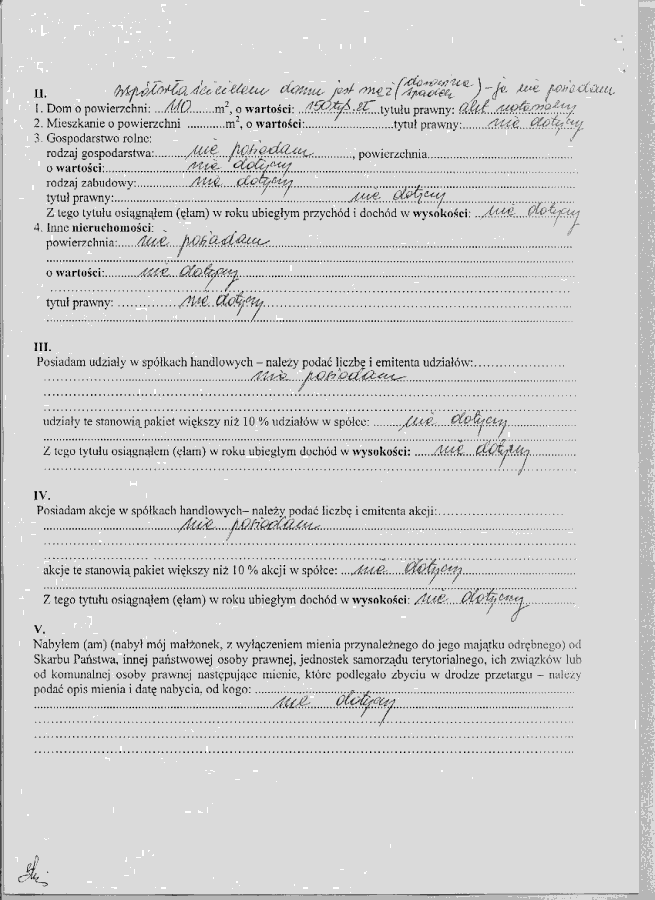 II. współwłaścicielem domu jest mąż (darowizna spadek) – ja nie posiadam
1. Dom o powierzchni: ...110.......m², o wartości: ...150 tyś. zł...tytułu prawny: akt notarialny
2. Mieszkanie o powierzchni ................m², o wartości:...........................tytuł prawny: ......nie dotyczy
3. Gospodarstwo rolne:
rodzaj gospodarstwa:..........nie posiadam............, powierzchnia......................................
o wartości:......................nie dotyczy
rodzaj zabudowy:...............nie dotyczy
tytuł prawny:.....................................................nie dotyczy
Z tego tytułu osiągnąłem (ęłam) w roku ubiegłym przychód i dochód w wysokości: ...nie dotyczy
4. Inne nieruchomości:
powierzchnia:........nie posiadam
o wartości:..........nie dotyczy
tytuł prawny: ..................nie dotyczy
III.
Posiadam udziały w spółkach handlowych – należy podać liczbę i emitenta udziałów:........................
nie posiadam
udziały te stanowią pakiet większy niż 10 % udziałów w spółce: ..........nie dotyczy
Z tego tytułu osiągnąłem (ęłam) w roku ubiegłym dochód w wysokości:......nie dotyczy
IV.
Posiadam akcje w spółkach handlowych– należy podać liczbę i emitenta akcji:.................................
nie posiadam
akcje te stanowią pakiet większy niż 10 % akcji w spółce: ....nie dotyczy
Z tego tytułu osiągnąłem (ęłam) w roku ubiegłym dochód w wysokości: nie dotyczy
V.
Nabyłem (am) (nabył mój małżonek, z wyłączeniem mienia przynależnego do jego majątku odrębnego) od
Skarbu Państwa, innej państwowej osoby prawnej, jednostek samorządu terytorialnego, ich związków lub
od komunalnej osoby prawnej następujące mienie, które podlegało zbyciu w drodze przetargu – należy
podać opis mienia i datę nabycia, od kogo: ..............................................................................
nie dotyczy